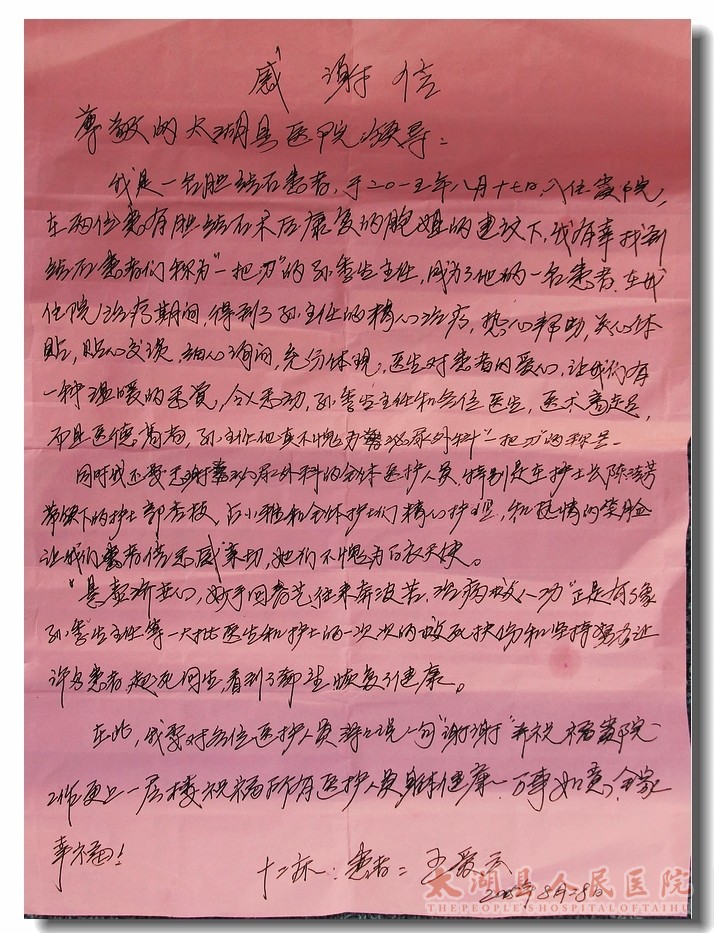 感谢信
尊敬的太湖县医院领导：
我是一名胆结石患者，于二〇一五年八月十七日入住贵院，
在两位患有胆结石术后康复的胞姐的建议下，我有幸找到
结石患者们称为“一把刀”的孙季生主任，成为了他的一名患者，在我
住院治疗期间，得到了孙主任的精心治疗，热心帮助，关心体
贴，贴心交谈，细心询问，充分体现，医生对患者的爱心，让我们有
一种温暖的感觉，令人感动，孙季生主任和各位医生，医术高超，
而且医德高尚，孙主任他真不愧为泌尿外科“一把刀”的称号。
同时我还要感谢泌尿外科的全体医护人员，特别是在护士长陈
带领下的护士和全体护士们精心护理，和热情的笑脸
让我们患者倍感亲切，她们不愧为白衣天使。
“悬壶济世心，妙手回春先，往来奔波苦，治病救人功”正是有了象
孙季生主任等一大批医生和护士的一次次的救死扶伤和坚持努力让
许多患者起死回生，看到了新生，恢复了健康。
在此，我要对各位医护人员说一句“谢谢”并祝福贵院
工作更上一层楼祝福所有医护人员身体健康、万事如意、全家
幸福！
十二床：患者：王爱云
2015年8月28日
太湖县人民医院
THE PEOPLE'S HOSPITAL OF TAIHU